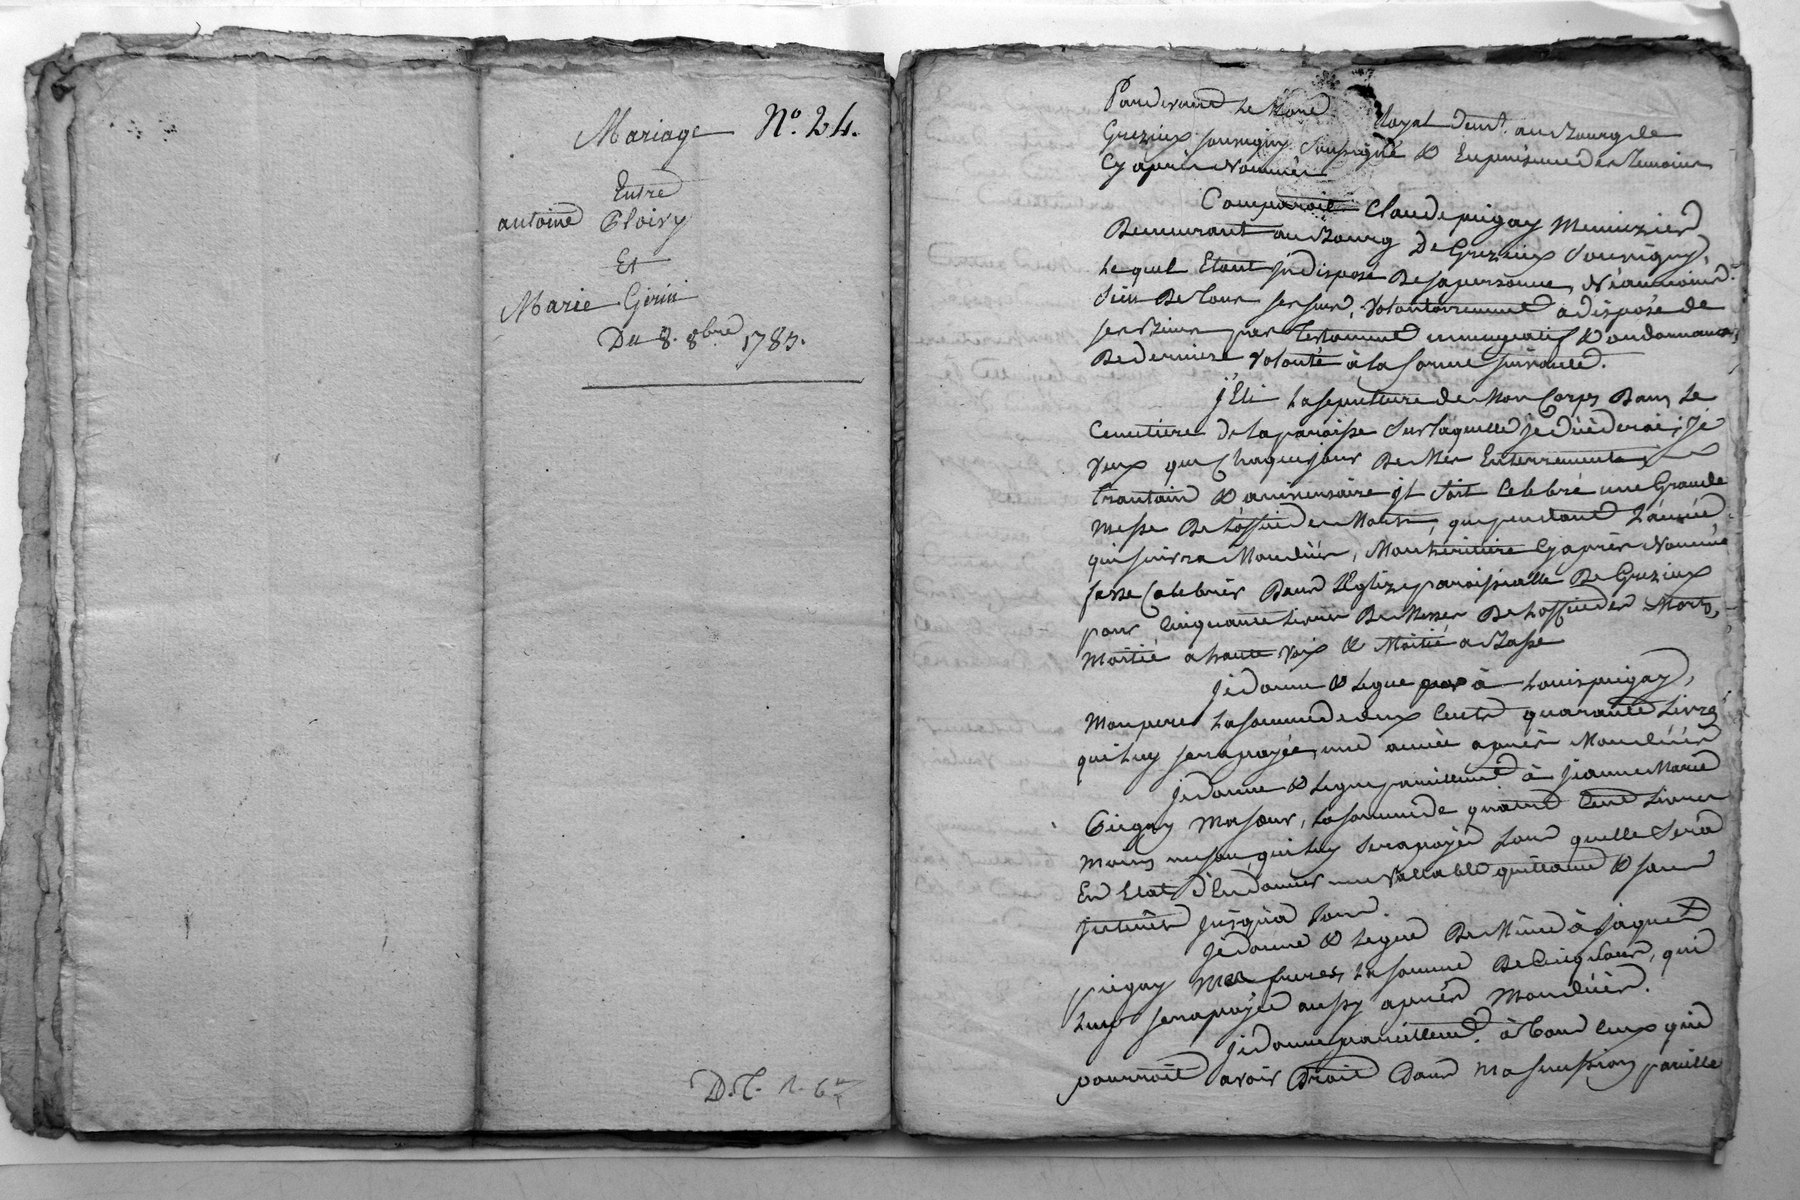 Mariage N.º 24.
Entre
antoine Cloisy
Et
Marie Gerin
Du 8. 8bre 1783.
D. C. 1. 6
Pardevant Le No.re Royal Dem.t au Bourg de
Grezieux Souvigny Soussigné & En présence des Temoins
Cy après Nommés
Comparoit Claude pirgay Menuizier
Demeurant au Bourg De Grezieux Souvigny,
Lequel Etant jndisposé De sa personne, Néanmoins
Sain De Tous ses sens, Volontairement a disposé de
ses Biens par Testament nuncupatif & ordonnance
De derniere Volonté à la forme suivante.
J'Elis La sepulture de Mon Corps Dans Le
Cimetiere De la paroisse Sur laquelle je décéderai, je
Veux que Chaque jour De Mes Enterrement,
Trantain & anniversaire jl soit Celebré une Grande
Messe De L'office des Morts, que pendant L'année
qui suivra Mon décès, Mon héritiere Cy après Nommée
fasse Celebrer Dans L'Eglize paroissialle De Grezieux
pour Cinquante Livres De Messes De L'office des Morts,
Moitié a haute Voix & Moitié a Basse
Je donne & Legue à Louis pirgay,
Mon pere La somme de deux Cents quarante Livres
qui Luy sera payée, une année après Mon décès
Je donne & Legue pareillement à Jeanne Marie
Pirgay Ma sœur, La somme de quatre Cent Livres
Moins un sou, qui Luy sera payée Lors quelle Sera
En Etat d'En donner une Vallable quittance & sans
jnterêts jusqu'a Lors.
Je donne & Legue De Même à Jaques
pirgay Mon frere, La somme De Cinq sous, qui
Luy sera payée aussy après Mon décès.
Je donne pareillem.t à Tous Ceux qui
pourroit avoir Droit Dans Ma succession pareille